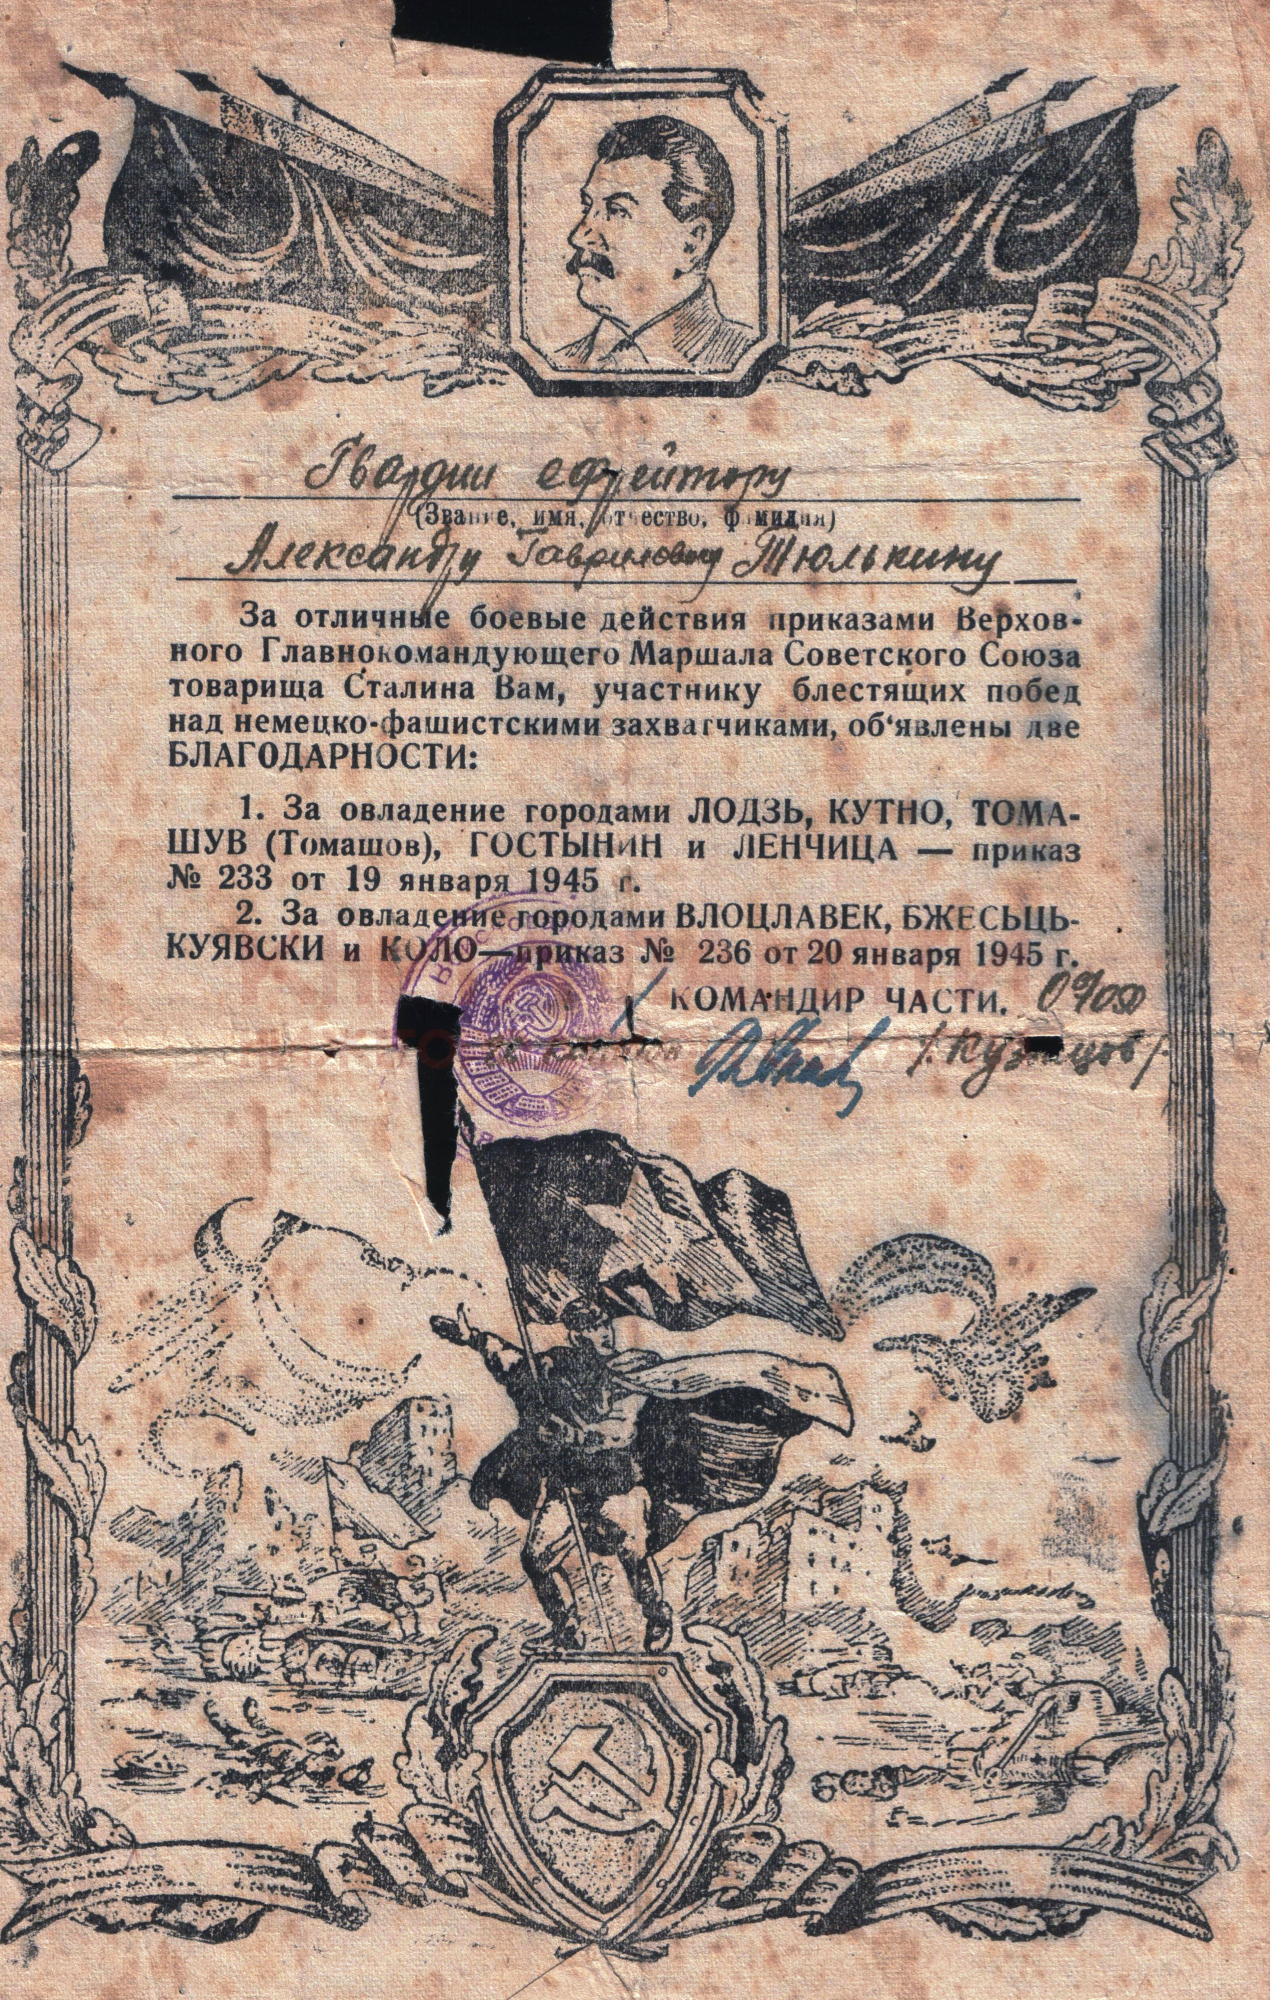 Гвардии ефрейтору
(Звание, имя, отчество, фамилия)
Александру Гавриловичу Тюлькину
За отличные боевые действия приказами Верхов-
ного Главнокомандующего Маршала Советского Союза
товарища Сталина Вам, участнику блестящих побед
над немецко-фашистскими захватчиками, об‘явлены две
БЛАГОДАРНОСТИ:
1. За овладение городами ЛОДЗЬ, КУТНО, ТОМА-
ШУВ (Томашов), ГОСТЫНИН и ЛЕНЧИЦА — приказ
№ 233 от 19 января 1945 г.
2. За овладение городами ВЛОЦЛАВЕК, БЖЕСЬЦЬ-
КУЯВСКИ и КОЛО—приказ № 236 от 20 января 1945 г.
КОМАНДИР ЧАСТИ.
/Кузнецов/